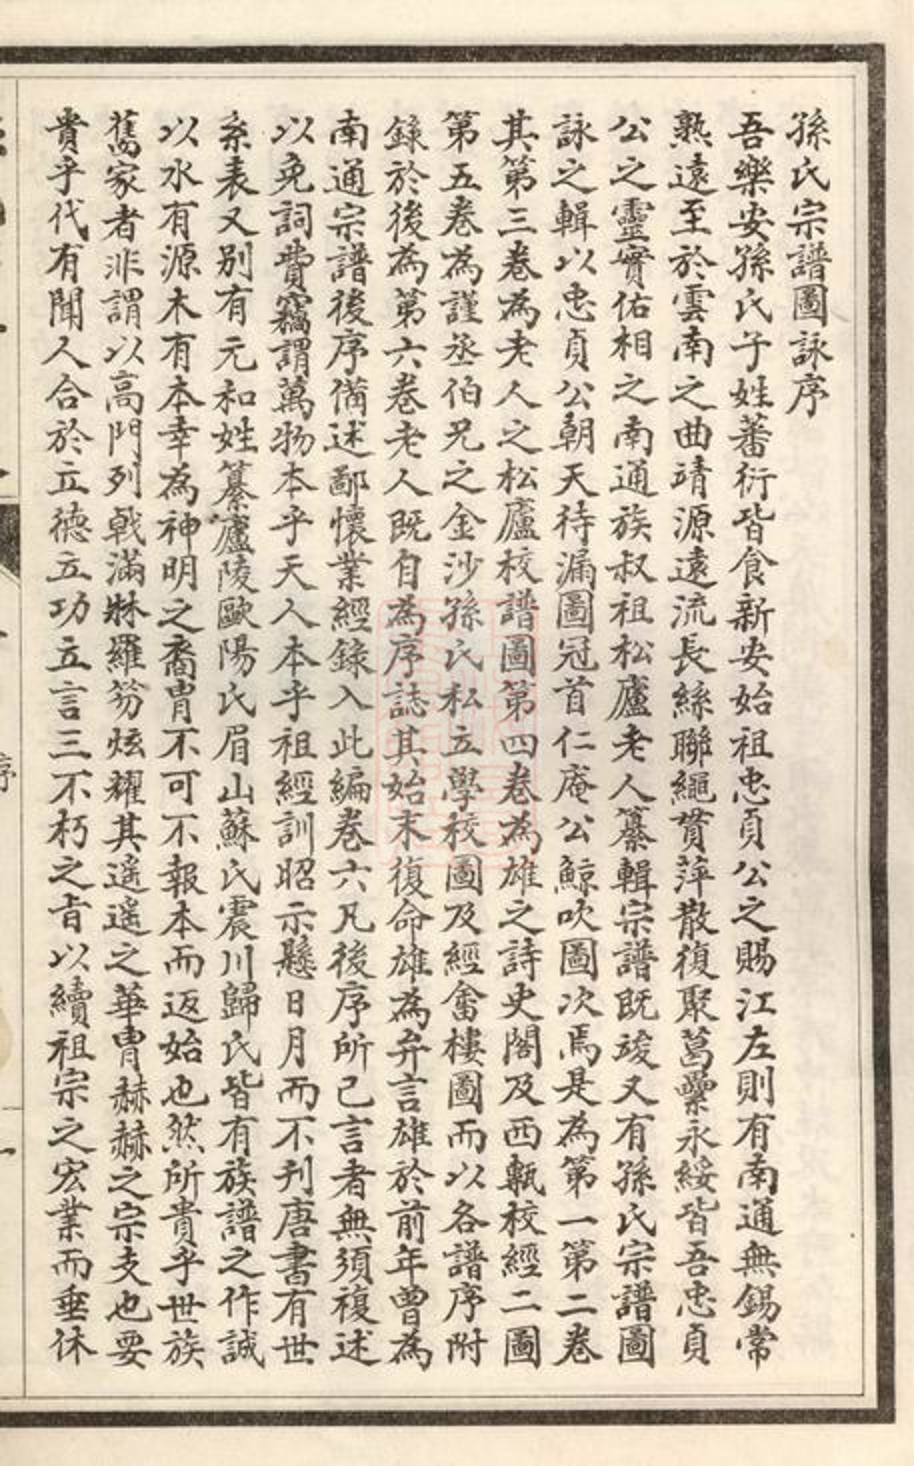 孫氏宗譜圖詠序
吾樂安孫氏子姓蕃衍皆食新安始祖忠貞公之賜江左則有南通無錫常
熟遠至於雲南之曲靖源遠流長絲聯繩貫萍散復聚葛纍永綏皆吾忠貞
公之靈實佑相之南通族叔祖松廬老人纂輯宗譜既竣又有孫氏宗譜圖
詠之輯以忠貞公朝天待漏圖冠首仁庵公鯨吹圖次焉是為第一第二卷
其第三卷為老人之松廬校譜圖第四卷為雄之詩史閣及西甎校經二圖
第五卷為謹丞伯兄之金沙孫氏私立學校圖及經畬樓圖而以各譜序附
錄於後為第六卷老人既自為序誌其始末復命雄為弁言雄於前年曾為
南通宗譜後序備述鄙懷業經錄入此編卷六凡後序所已言者無須複述
以免詞費竊謂萬物本乎天人本乎祖經訓昭示懸日月而不刋唐書有世
系表又別有元和姓纂廬陵歐陽氏眉山蘇氏震川歸氏皆有族譜之作誠
以水有源木有本幸為神明之裔冑不可不報本而返始也然所貴乎世族
舊家者非謂以高門列戟滿牀羅笏炫耀其遥遥之華冑赫赫之宗支也要
貴乎代有聞人合於立德立功立言三不朽之旨以續祖宗之宏業而垂休
序